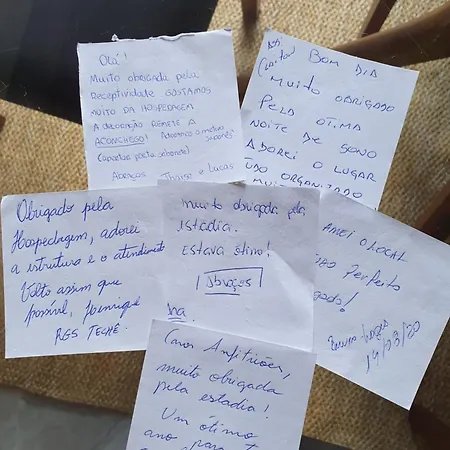 Olá!
Muito obrigada pela
Receptividade gostamos
muito da hospedagem
A decoração remete a
ACONCHEGO! Adoramos
Abraços Thaise e Lucas
Bom dia
Muito obrigado
pela ótima
noite de sono
Adorei o lugar
tudo organizado
Obrigado pela
Hospedagem, adorei
a estrutura e o atendimento
Volto assim que
possível, Henrique
RGS TECHÊ.
Muito obrigada pela
Estadia.
Estava ótimo!
Abraços
Amei o local
Perfeito
Caros Anfitriões,
muito obrigada
pela estadia!
Um ótimo
ano para